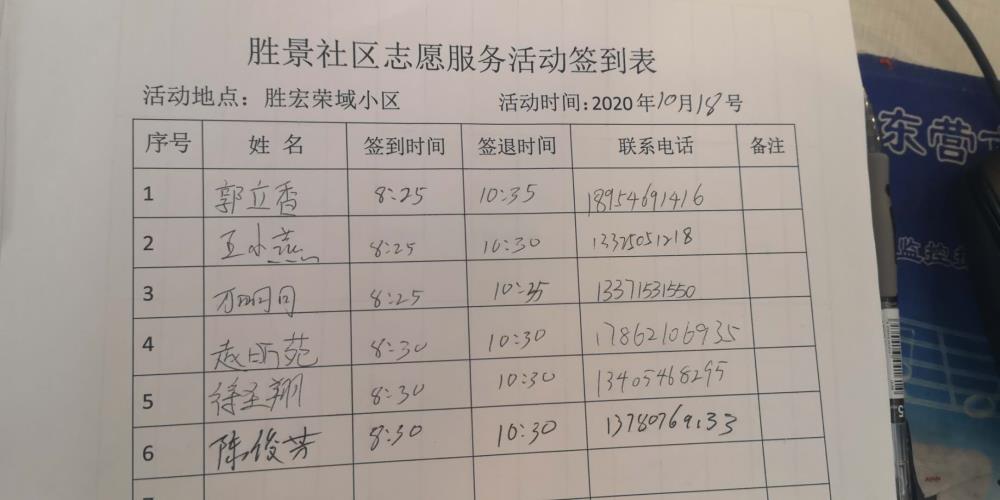 胜景社区志愿服务活动签到表
活动地点：胜宏荣域小区 活动时间：2020年10月18号
序号 姓名 签到时间 签退时间 联系电话 备注
1 郭立香 8:25 10:35 18954691416
2 王小燕 8:25 10:30 13325051218
3 8:25 10:35 13371531550
4 赵昕苑 8:30 10:30 17862106935
5 徐圣翔 8:30 10:30 13405468295
6 陈俊芳 8:30 10:30 13780769133
东营
监控